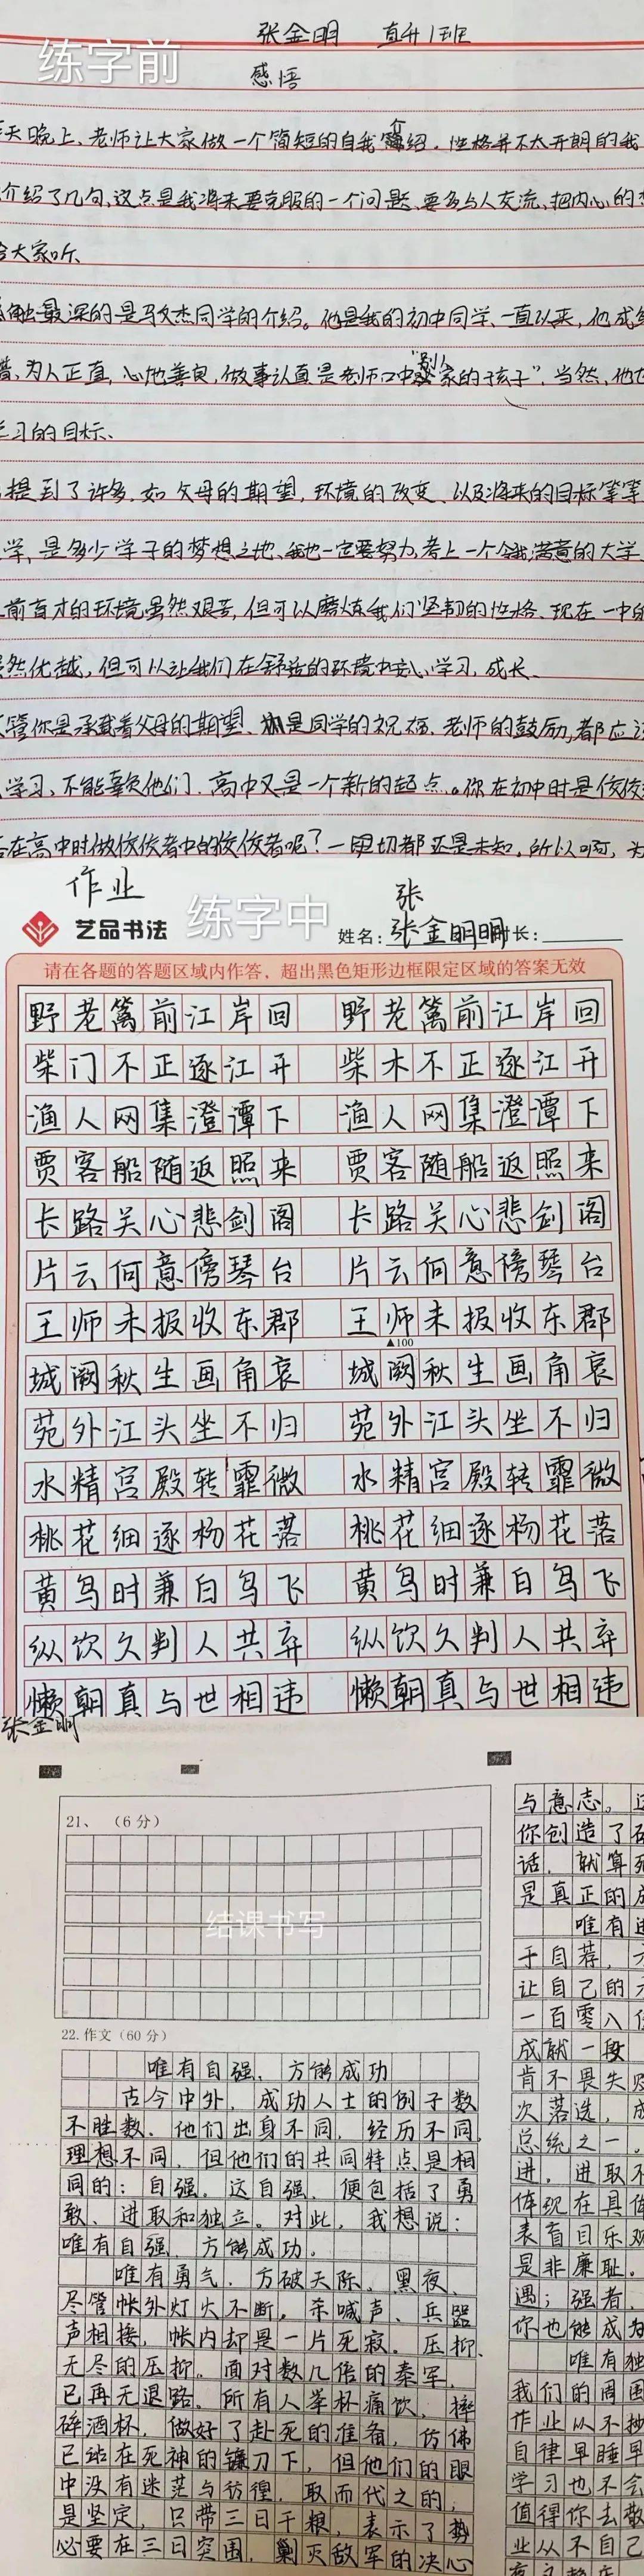 练字前
张金明 直升1班
感悟
天晚上、老师让大家做一个简短的自我介绍。性格并不太开朗的我
介绍了几句,这点是我将来要克服的一个问题、要多与人交流、把内心的
大家听、
触最深的是马文杰同学的介绍。他是我的初中同学、一直以来,他成
为人正直,心地善良,做事认真是老师口中“别家的孩子”.当然、他
习的目标、
提到了许多.如父母的期望,环境的改变、以及将来的目标等等
学,是多少学子的梦想之地、我也一定要努力,考上一个令我满意的大学、
前育才的环境虽然艰苦,但可以磨炼我们坚韧的性格、现在一中的
然优越,但可以让我们在舒适的环境中安心学习,成长、
管你是承载着父母的期望、是同学的祝福.老师的鼓励,都应
学习、不能辜负他们.高中又是一个新的起点。你在初中时是佼佼
在高中时做佼佼者中的佼佼者呢?一切都还是未知,所以啊,
作业
练字中
张
艺品书法
姓名:张金明明 时长:
请在各题的答题区域内作答,超出黑色矩形边框限定区域的答案无效
野老篱前江岸回 野老篱前江岸回
柴门不正逐江开 柴木不正逐江开
渔人网集澄潭下 渔人网集澄潭下
贾客船随返照来 贾客随船返照来
长路关心悲剑阁 长路关心悲剑阁
片云何意傍琴台 片云何意傍琴台
王师未报收东郡 王师未报收东郡
▲100
城阙秋生画角哀 城阙秋生画角哀
苑外江头坐不归 苑外江头坐不归
水精宫殿转霏微 水精宫殿转霏微
桃花细逐杨花落 桃花细逐杨花落
黄鸟时兼白鸟飞 黄鸟时兼白鸟飞
纵饮久判人共弃 纵饮久判人共弃
懒朝真与世相违 懒朝真与世相违
张金明
21、(6分)
结课书写
22.作文(60分)
唯有自强、方能成功
古今中外,成功人士的例子数
不胜数、他们出身不同,经历不同,
理想不同,但他们的共同特点是相
同的:自强。这自强,便包括了勇
敢、进取和独立。对此,我想说:
唯有自强,方能成功。
唯有勇气,方破天际。黑夜、
尽管帐外灯火不断。杀喊声、兵器
声相接,帐内却是一片死寂。压抑、
无尽的压抑。面对数几倍的秦军,
已再无退路。所有人举杯痛饮,摔
碎酒杯,做好了赴死的准备,仿佛
已站在死神的镰刀下,但他们的眼
中没有迷茫与彷徨,取而代之的,
是坚定,只带三日干粮,表示了势
必要在三日突围,剿灭敌军的决心
与意志。
你创造了
话,就算
是真正的
唯有
于自荐,
让自己的
一百零八
成就一段
肯不畏失
次落选,
总统之一。
进。进取不
体现在具体
表盲目乐观
是非廉耻。
遇;强者、
你也能成为
唯有独
我们的周围
作业从不抄
自律早睡早
学习也不会
值得你去敬
业从不自己